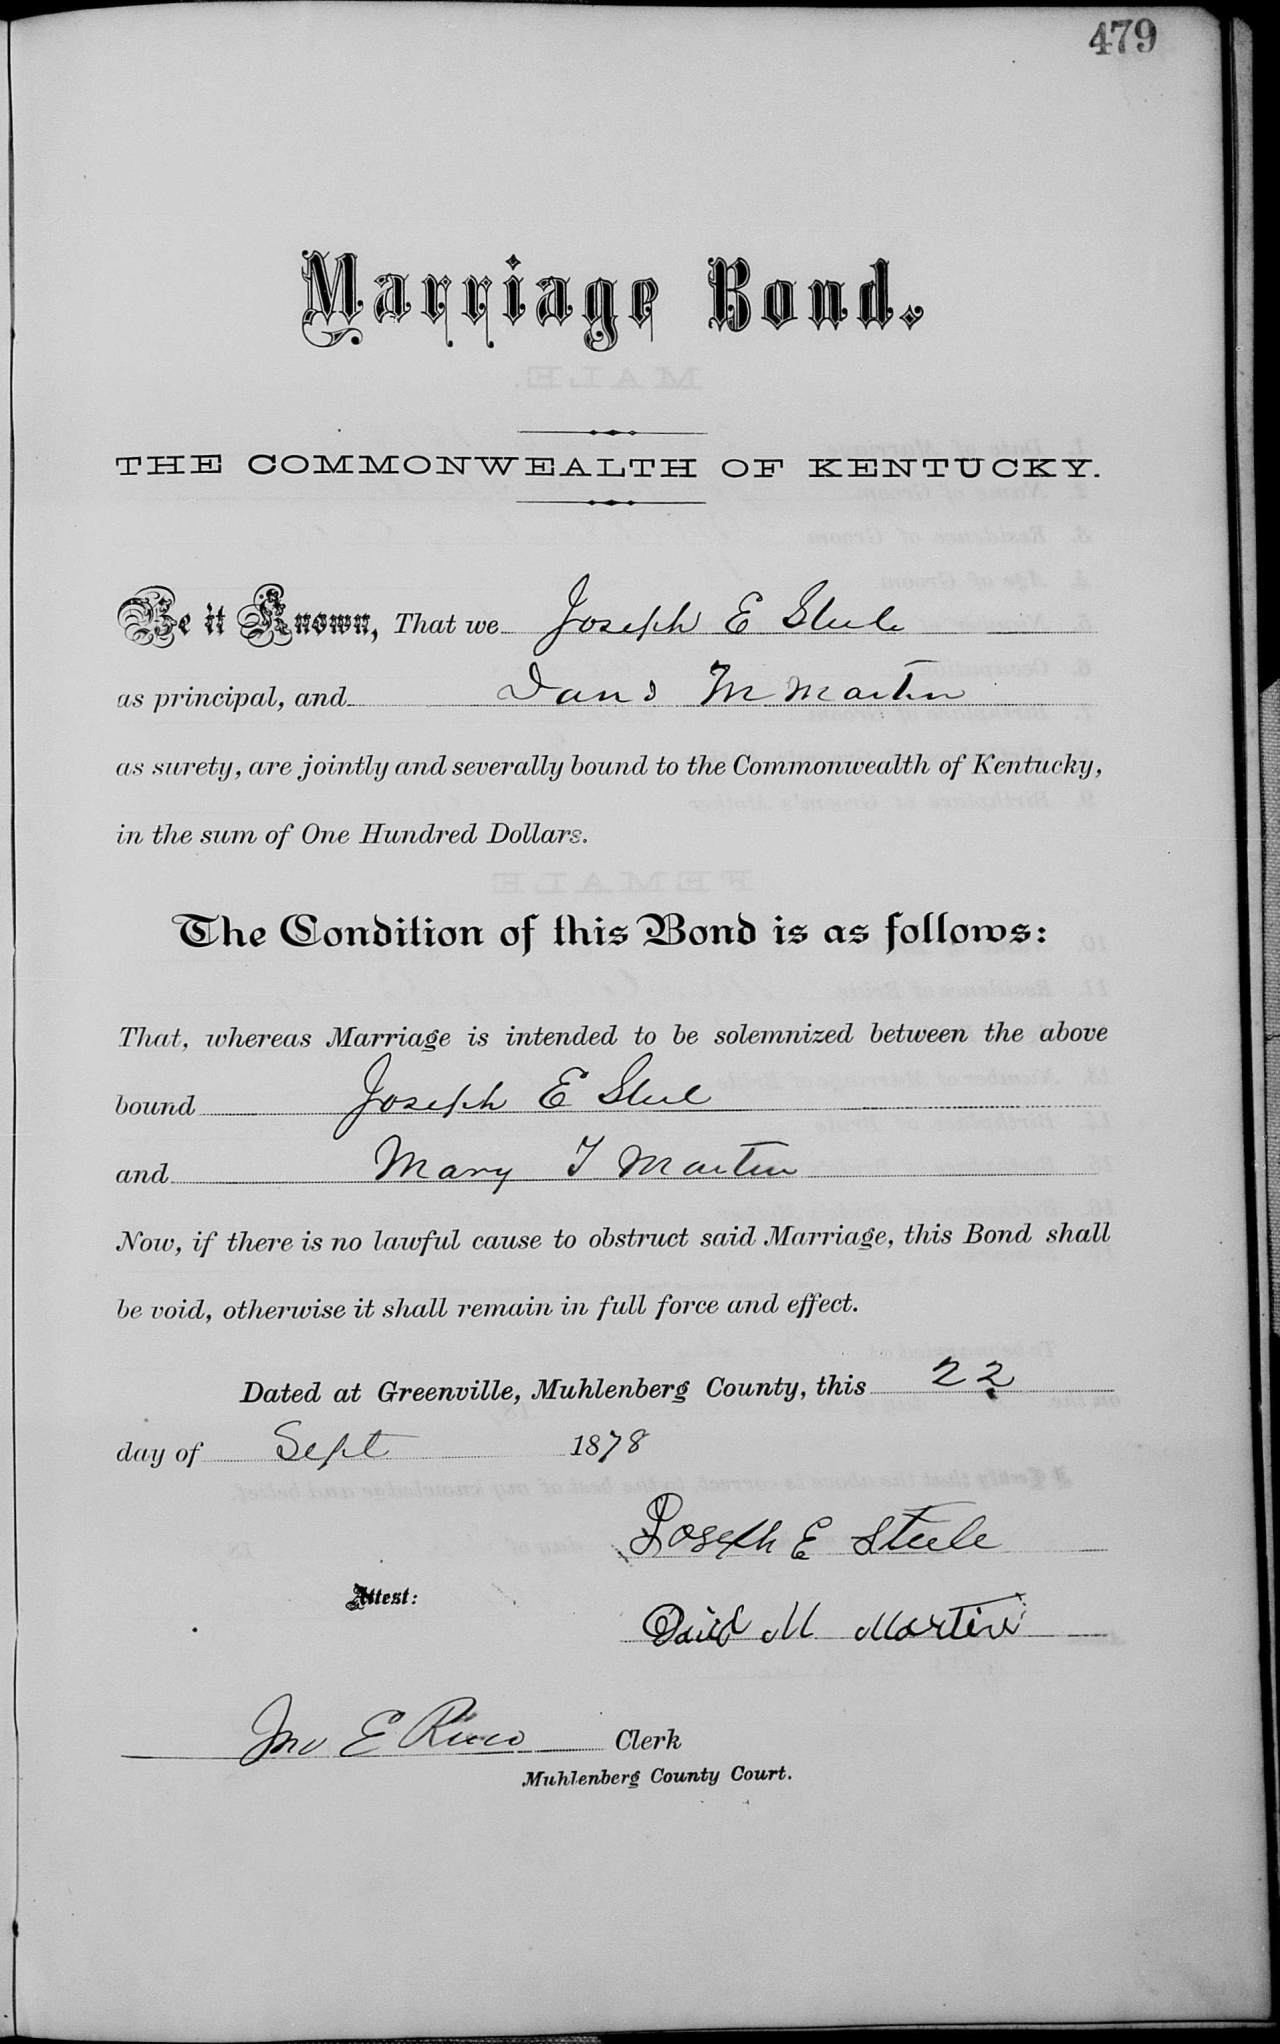 479
Marriage Bond.
THE COMMONWEALTH OF KENTUCKY.
Be it Known, That we Joseph E Steele
as principal, and David M Martin
as surety, are jointly and severally bound to the Commonwealth of Kentucky,
in the sum of One Hundred Dollars.
The Condition of this Bond is as follows:
That, whereas Marriage is intended to be solemnized between the above
bound Joseph E Steele
and Mary T Martin
Now, if there is no lawful cause to obstruct said Marriage, this Bond shall
be void, otherwise it shall remain in full force and effect.
Dated at Greenville, Muhlenberg County, this 22
day of Sept 1878
Joseph E Steele
Attest:
David M Martin
Jno E Reno Clerk
Muhlenberg County Court.